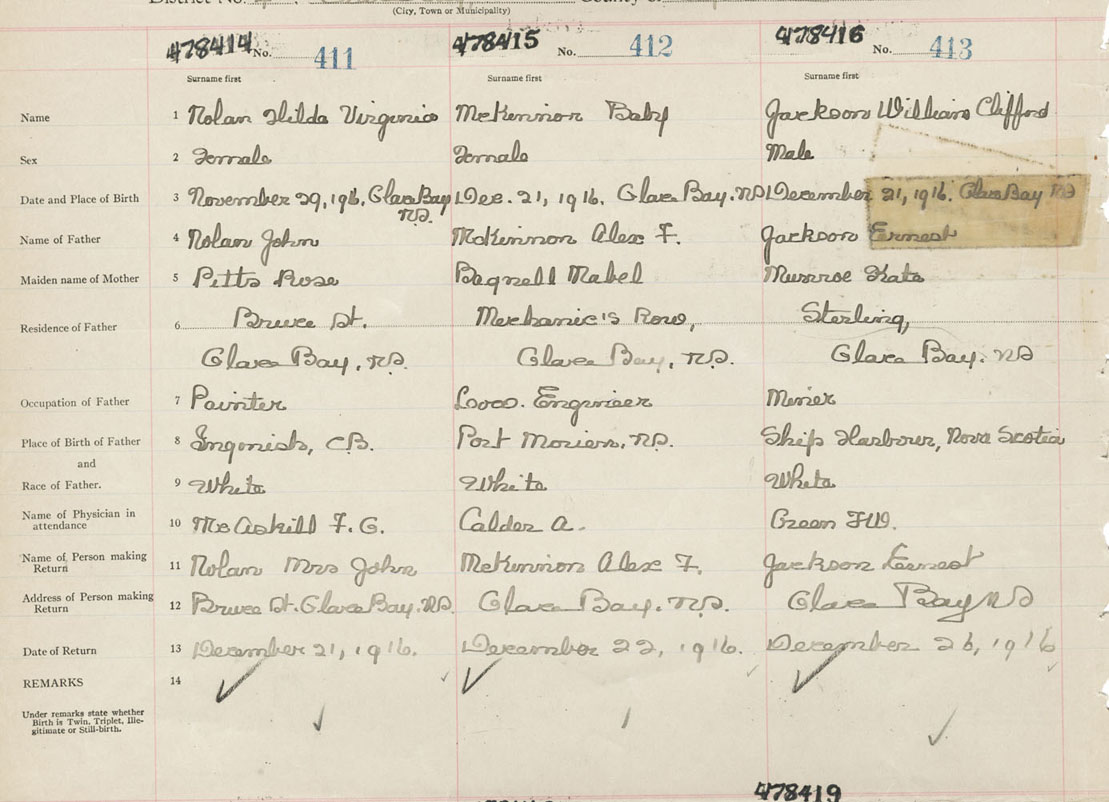 District No.
County of
(City, Town or Municipality)
478414 No. 411 478415 No. 412 478416 No. 413
Surname first Surname first Surname first
Name 1 Nolan Hilda Virginia McKinnon Baby Jackson William Clifford
Sex 2 Female Female Male
Date and Place of Birth 3 November 29, 1916, Glace Bay Dec. 21, 1916, Glace Bay. NS December 21, 1916. Glace Bay NS
N.S.
Name of Father 4 Nolan John McKinnon Alex F. Jackson Ernest
Maiden name of Mother 5 Pitts Rose Bagnell Mabel Munroe Kate
Residence of Father 6 Bruce St. Mechanic's Row, Sterling,
Glace Bay, N.S. Glace Bay, N.S. Glace Bay. NS
Occupation of Father 7 Painter Loco. Engineer Miner
Place of Birth of Father 8 Ingonish, C.B. Port Morien, N.S. Ship Harbour, Nova Scotia
and
Race of Father. 9 White White White
Name of Physician in
attendance 10 McAskill F. G. Calder A. Green F.W.
Name of Person making
Return 11 Nolan Mrs John McKinnon Alex F. Jackson Ernest
Address of Person making
Return 12 Bruce St. Glace Bay. N.S. Glace Bay. N.S. Glace Bay NS
Date of Return 13 December 21, 1916. December 22, 1916. December 26, 1916
REMARKS 14
Under remarks state whether
Birth is Twin, Triplet, Ille-
gitimate or Still-birth.
478419